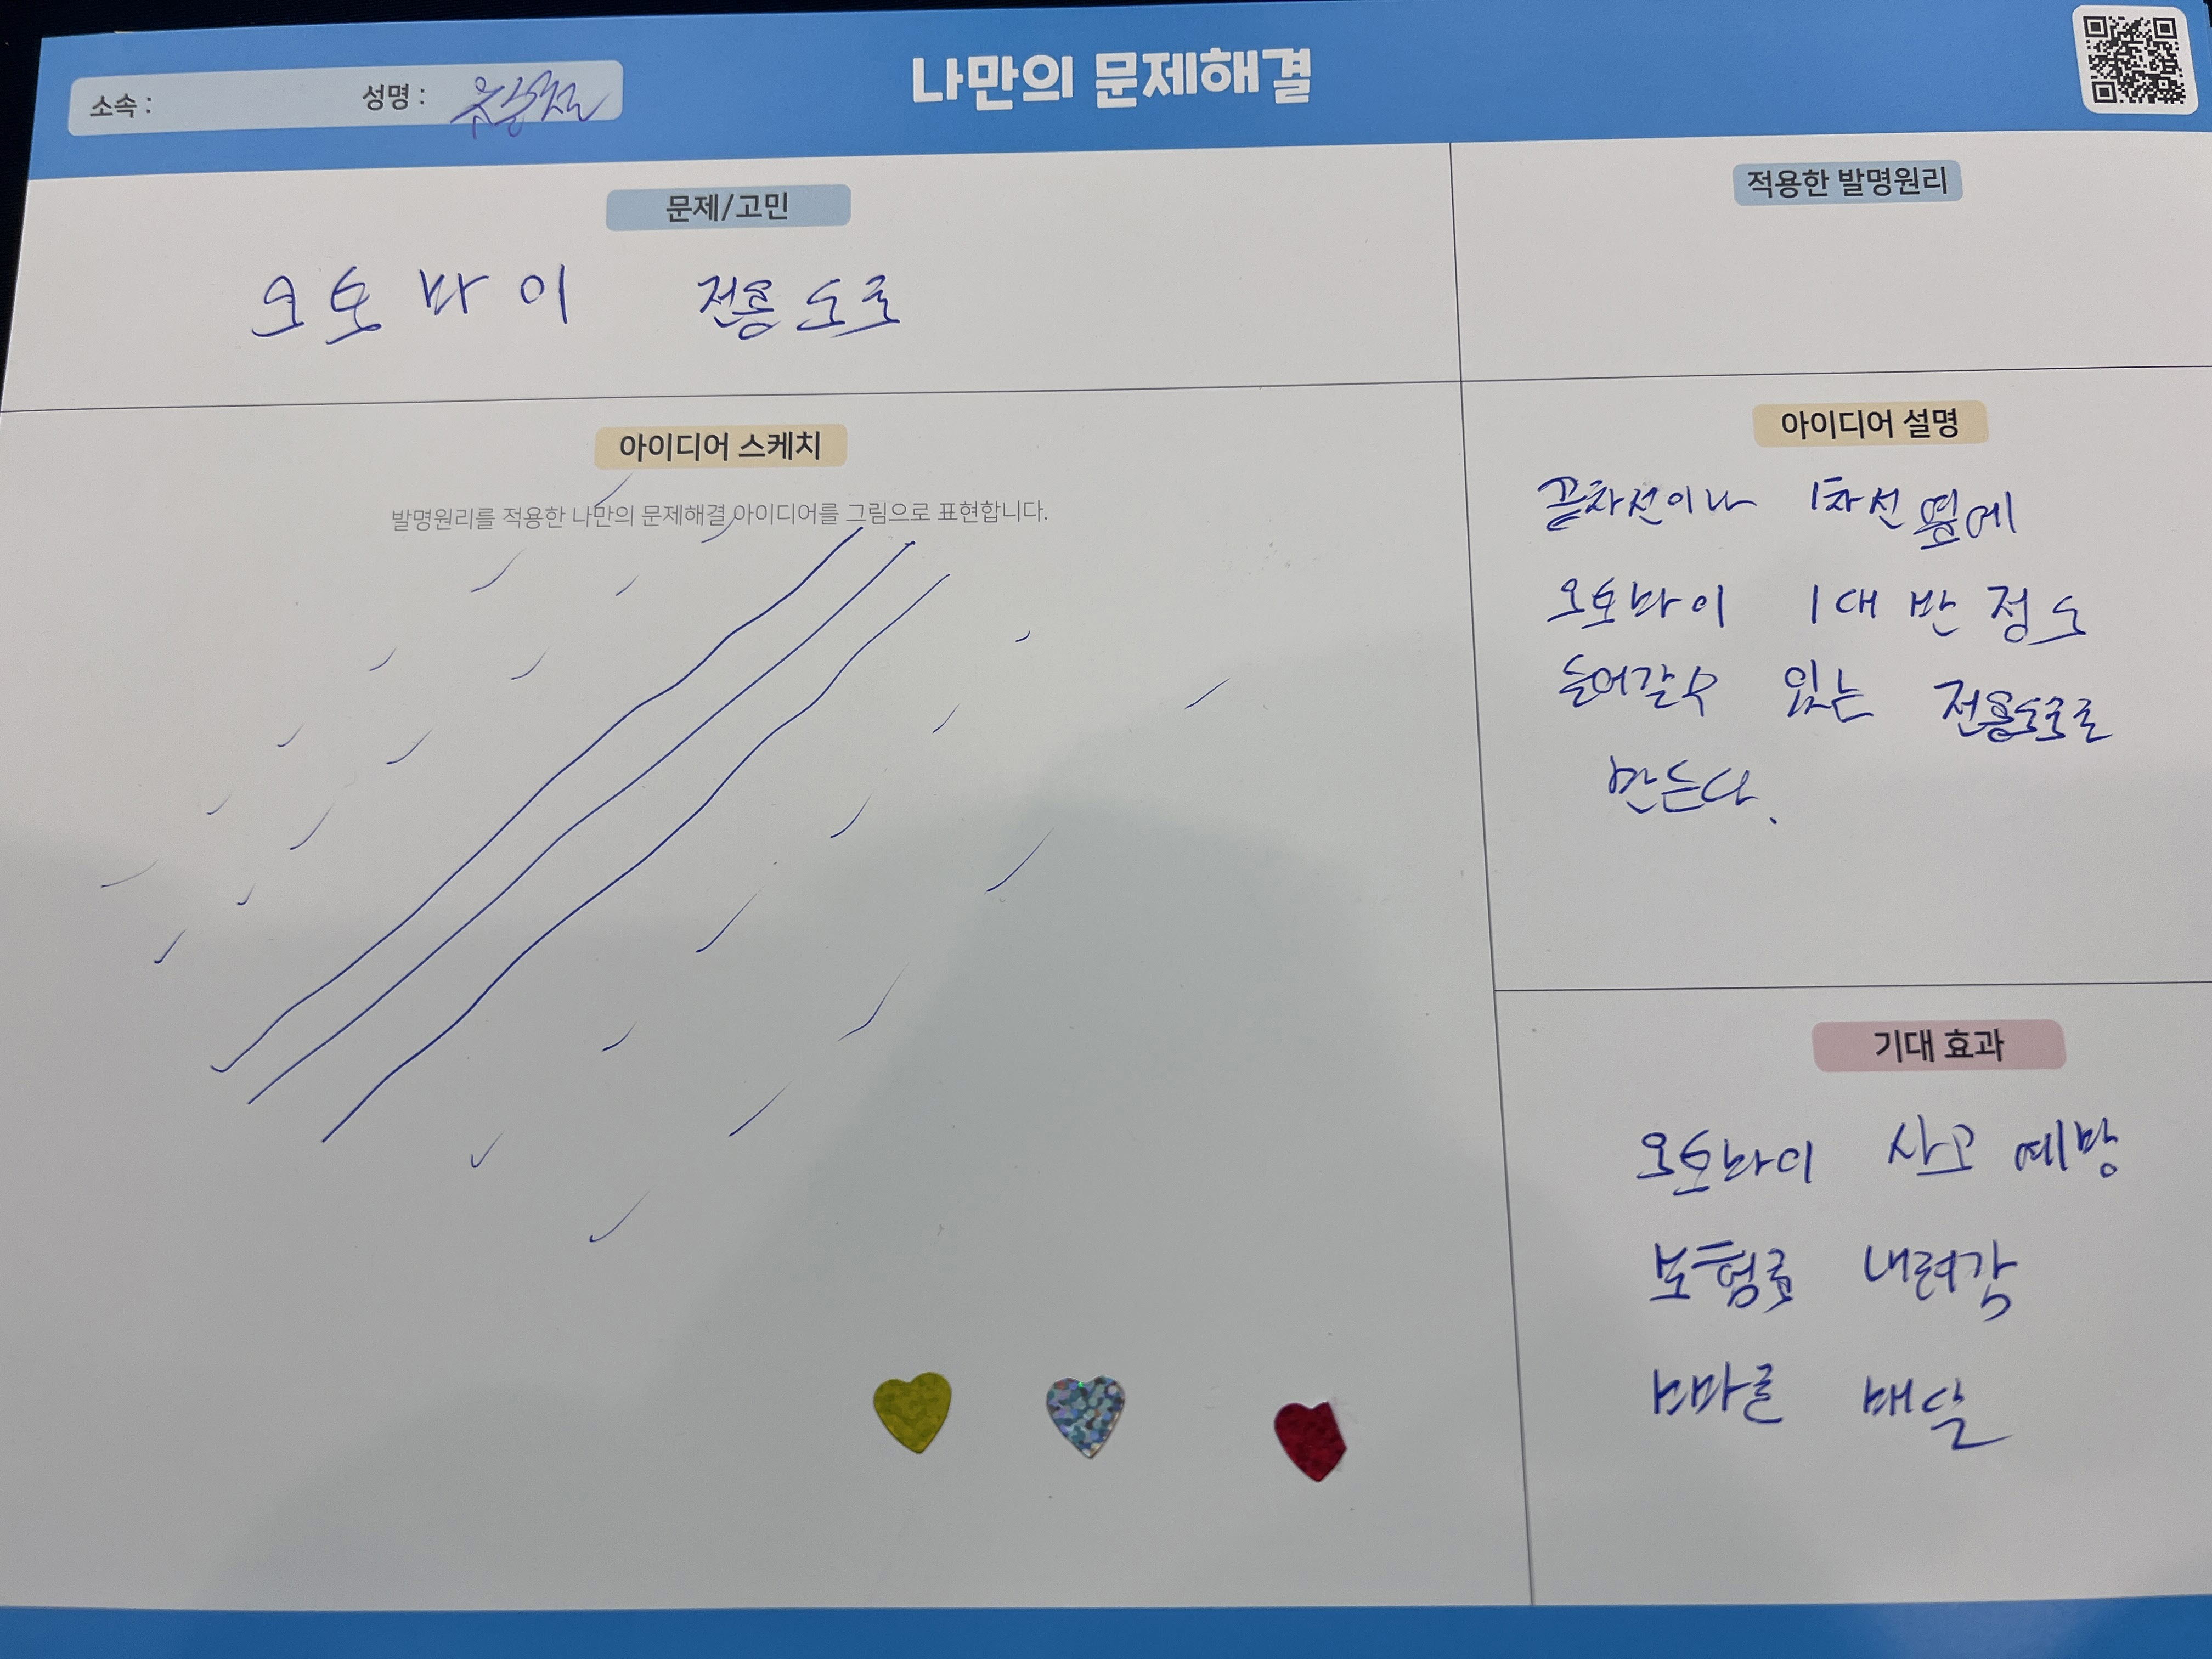 나만의 문제해결
소속 : 성명 :
문제/고민
오토바이 전용도로
적용한 발명원리
아이디어 스케치
발명원리를 적용한 나만의 문제해결 아이디어를 그림으로 표현합니다.
아이디어 설명
끝차선이나 1차선 옆에
오토바이 1대 반 정도
들어갈수 있는 전용도로로
만든다.
기대 효과
오토바이 사고 예방
보험료 내려감
빠마른 배달